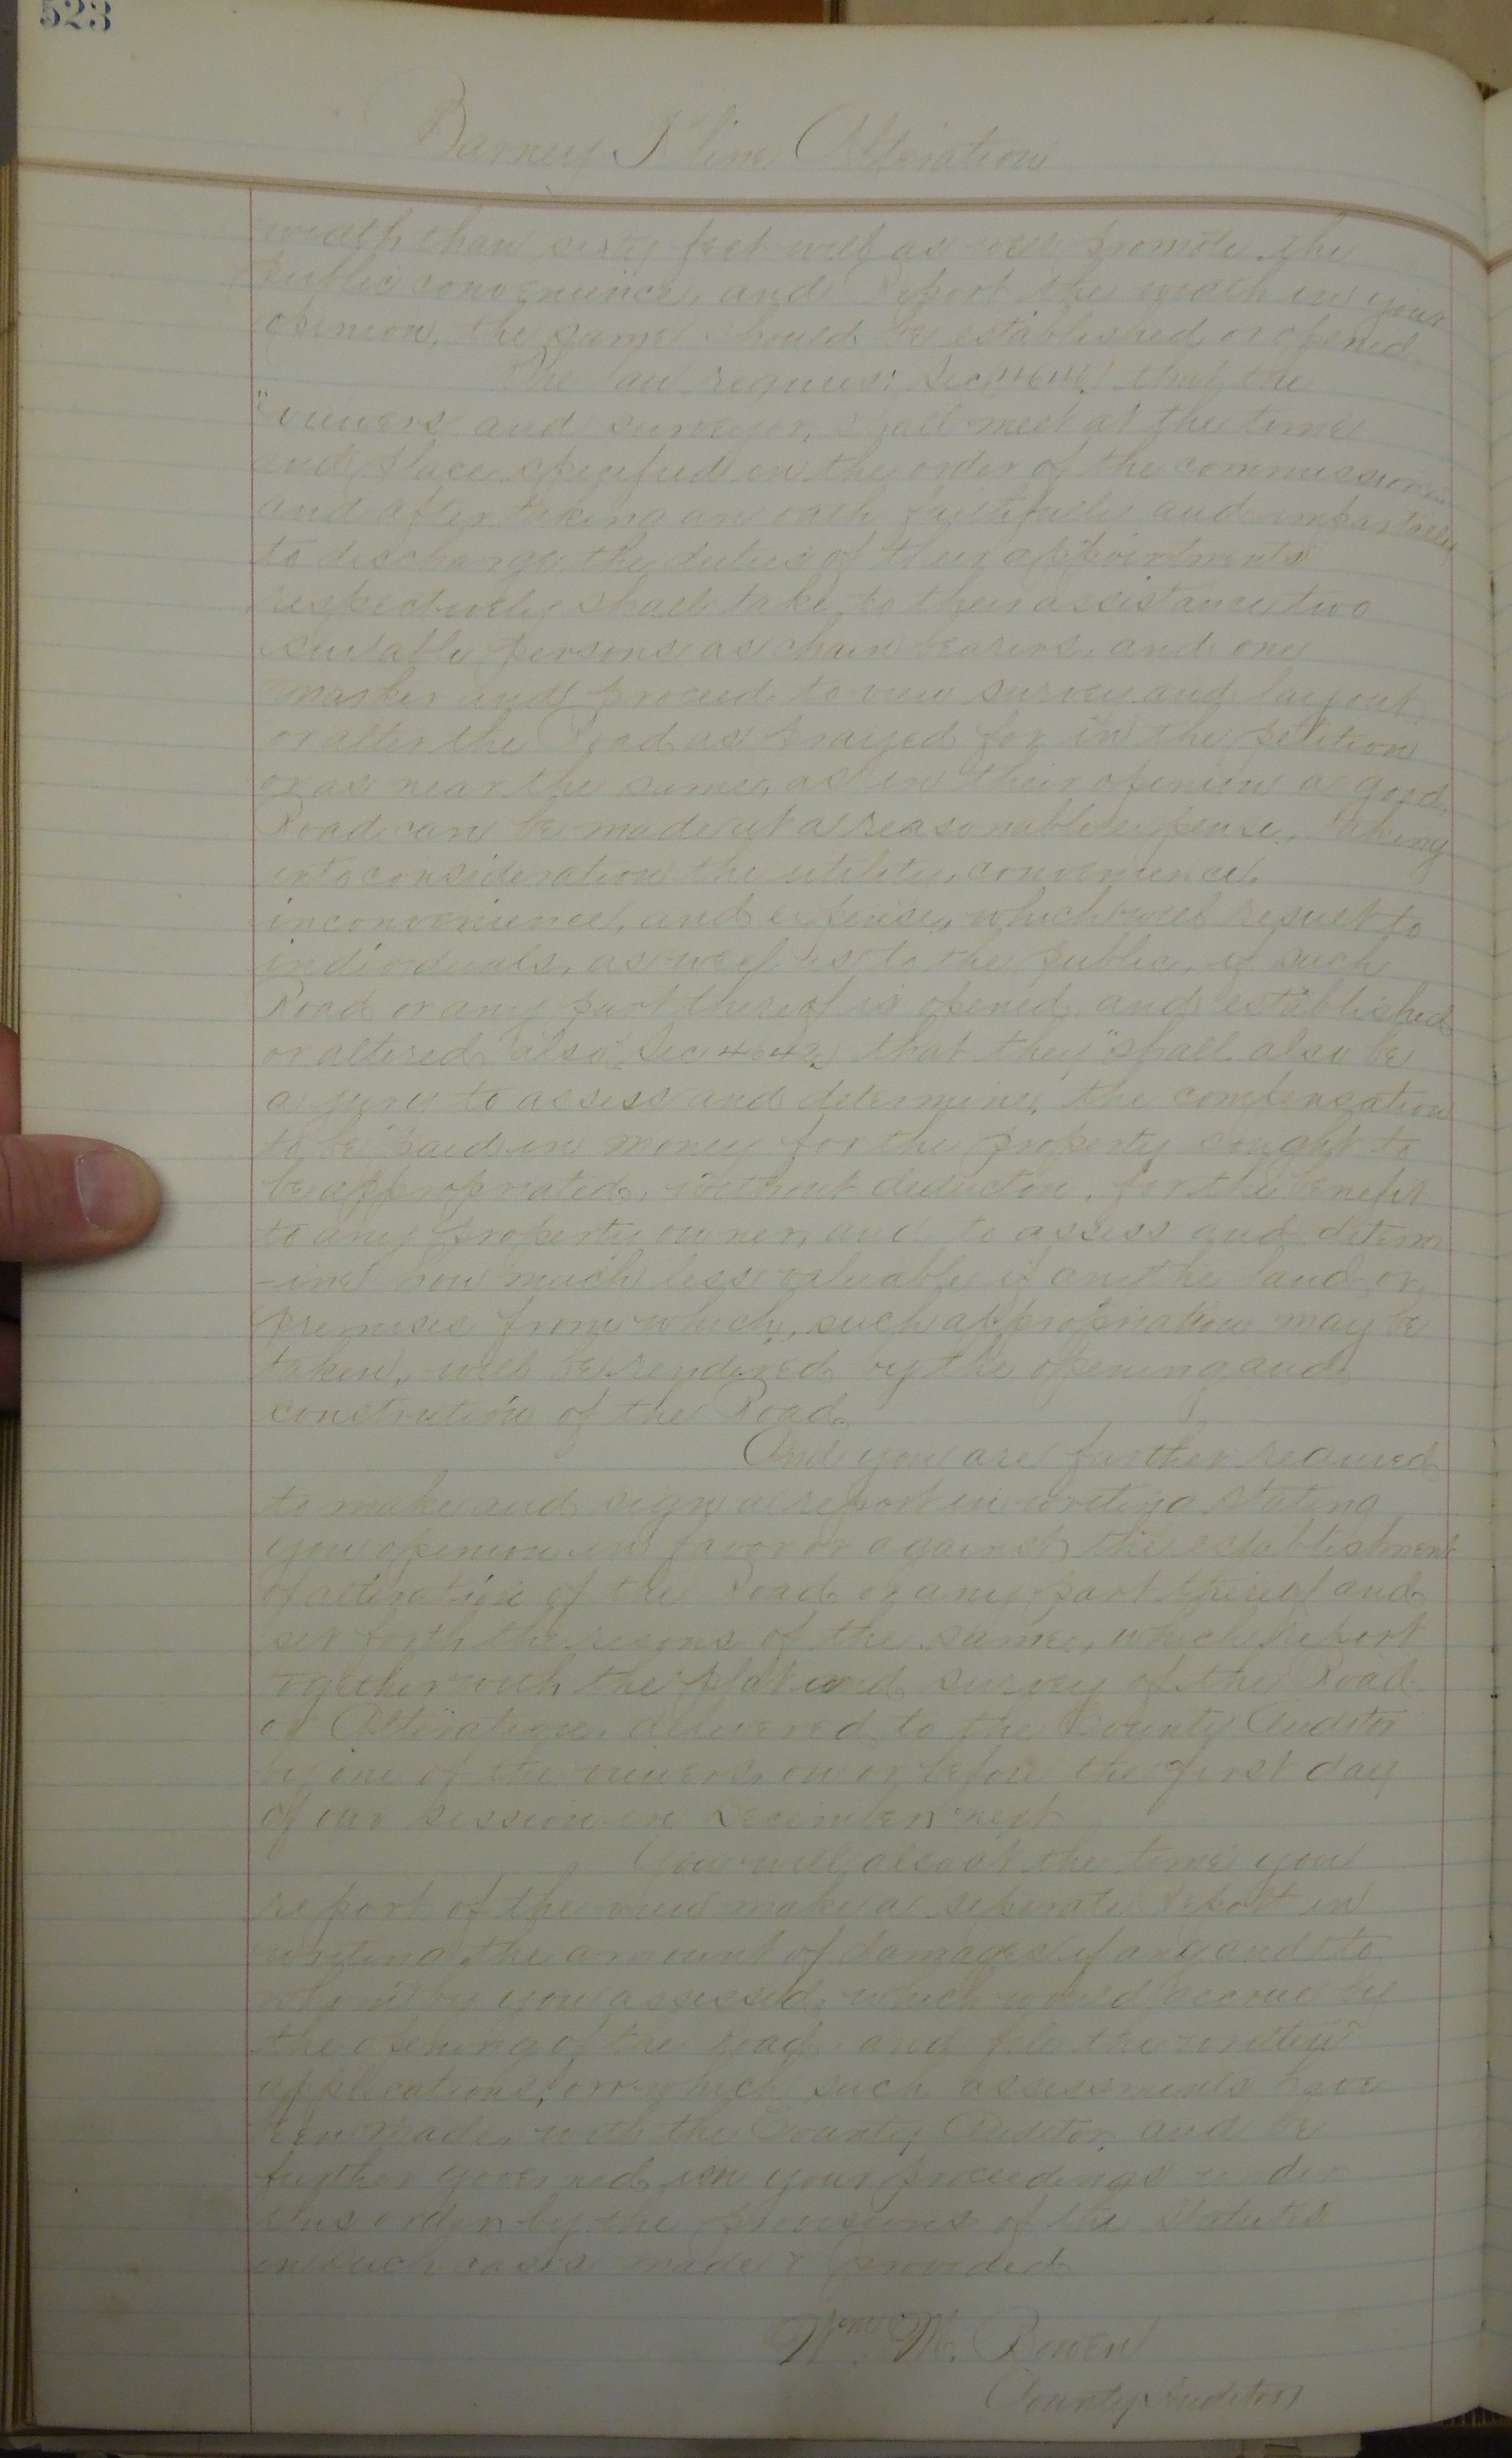 523
Barney Kline Alteration
width than sixty feet will as well promote the
public convenience, and Report the width in your
opinion, the same should be established or opened.
The law requires: Sec that the
"viewers and surveyor, shall meet at the time
and place specified in the order of the commissioners
and after taking an oath faithfully and impartially
to discharge the duties of their appointments
respectively shall take to their assistance two
suitable persons as chain bearers, and one
marker and proceed to view survey and layout
or alter the Road as prayed for in the petition
or as near the same, as in their opinion a good
Road can be made at a reasonable expense, taking
into consideration the utility, convenience,
inconvenience, and expense, which will result to
individuals, as well as to the public, if such
Road or any part thereof is opened and established
or altered" also Sec 4642, that they "shall also be
a jury to assess and determine, the compensation
to be paid in money for the property sought to
be appropriated, without deduction, for the benefit
to any property owner, and to assess and determ
-ine how much less valuable if any the land or
premises from which, such appropriation may be
taken, will be rendered by the opening and
construction of the Road.
And you are further required
to make and sign a report in writing stating
your opinion in favor or against, the establishment
of alteration of the Road or any part thereof and
set forth the resons of the same, which report
together with the plat and survey of the Road
or Alteration, delivered to the County Auditor
by one of the viewers, on or before the first day
of our session in December next
You will also at the time you
report of the view make a seperate Report in
writing the amount of damages if any and to
whom by you assessed, which would accrue by
the opening of the road, and file the written
applications, on which such assessments have
been made, with the County Auditor, and be
further governed in your proceedings under
this order by the provisions of the Statutes
in such cases made & provided
Wm. M. Bowen
County Auditor